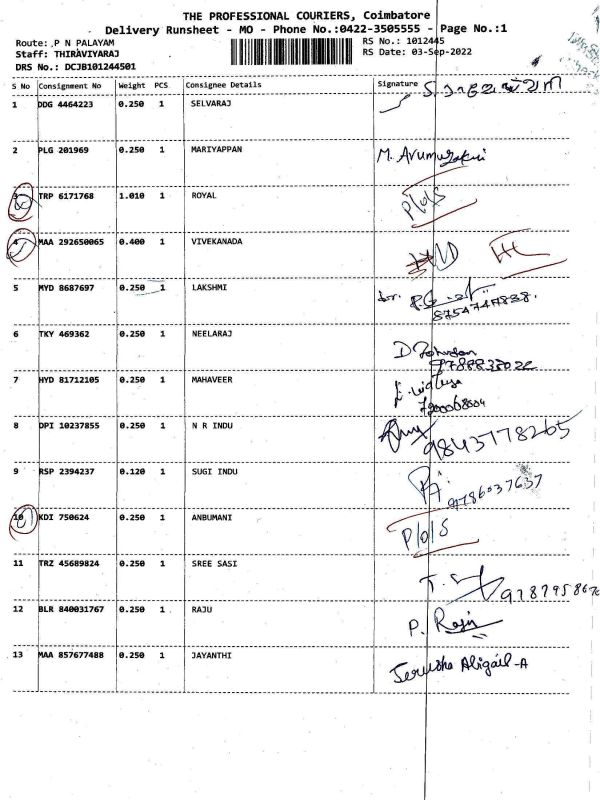 THE PROFESSIONAL COURIERS, Coimbatore
Delivery Runsheet - MO - Phone No.:0422-3505555 - Page No.:1
Route: P N PALAYAM
RS No.: 1012445
Staff: THIRAVIYARAJ
RS Date: 03-Sep-2022
DRS No.: DCJB101244501
S No Consignment No Weight PCS Consignee Details Signature
1 DDG 4464223 0.250 1 SELVARAJ
2 PLG 201969 0.250 1 MARIYAPPAN M. Arumugakani
3 TRP 6171768 1.010 1 ROYAL P/o/S
4 MAA 292650065 0.400 1 VIVEKANADA
5 MYD 8687697 0.250 1 LAKSHMI
6 TKY 469362 0.250 1 NEELARAJ D Johnson
9788838022
7 HYD 81712105 0.250 1 MAHAVEER
7200068004
8 DPI 10237855 0.250 1 N R INDU 9843778265
9 RSP 2394237 0.120 1 SUGI INDU 9786037637
10 KDI 750624 0.250 1 ANBUMANI P/o/S
11 TRZ 45689824 0.250 1 SREE SASI
12 BLR 840031767 0.250 1 RAJU P. Raju
13 MAA 857677488 0.250 1 JAYANTHI Jerusha Abigail-A